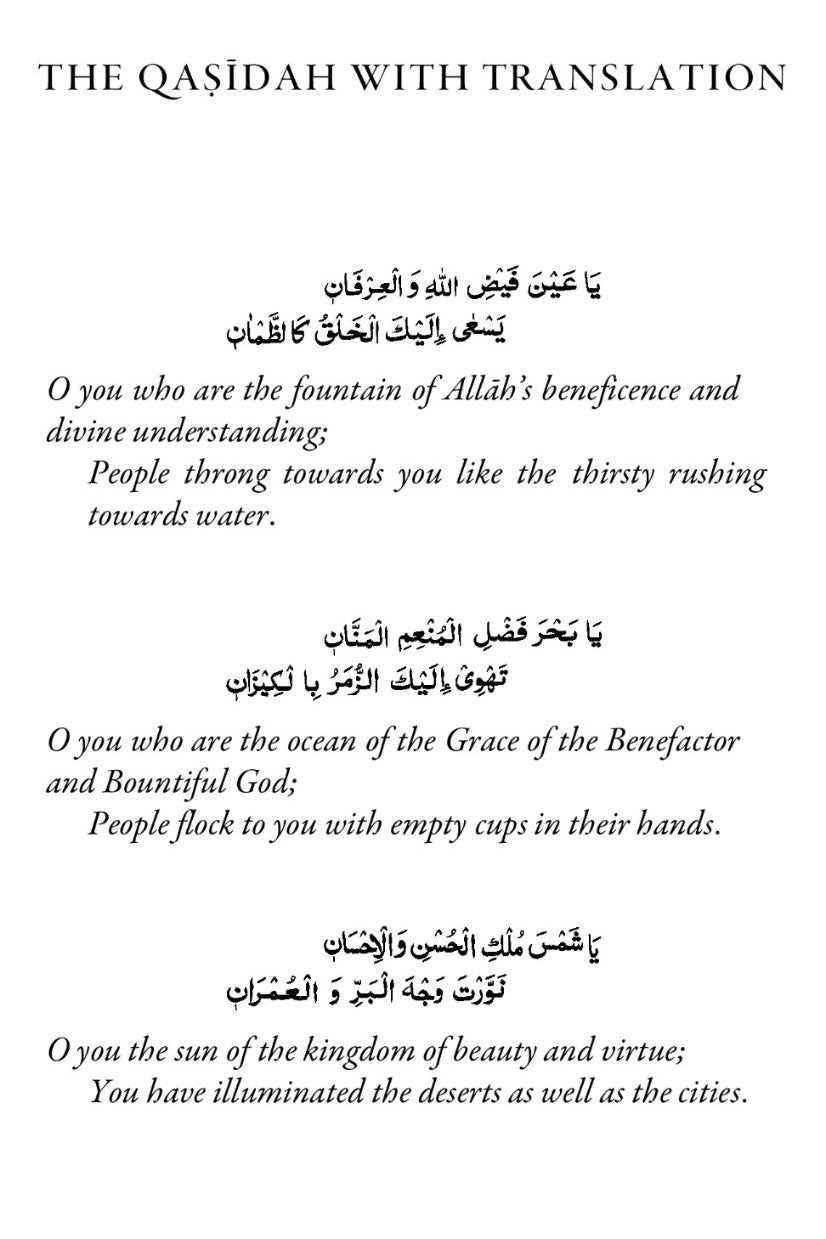 THE QAṢĪDAH WITH TRANSLATION
يَا عَيْنَ فَيْضِ اللّٰهِ وَ الْعِرْفَانٖ
يَسْعٰى إِلَيْكَ الْخَلْقُ كَالظَّمْاٰنٖ
O you who are the fountain of Allāh’s beneficence and
divine understanding;
People throng towards you like the thirsty rushing
towards water.
يَا بَحْرَ فَضْلِ الْمُنْعِمِ الْمَنَّانٖ
تَهْوِيْ إِلَيْكَ الزُّمَرُ بِا لْكِيْزَانٖ
O you who are the ocean of the Grace of the Benefactor
and Bountiful God;
People flock to you with empty cups in their hands.
يَا شَمْسَ مُلْكِ الْحُسْنِ وَالْإِحْسَانٖ
نَوَّرْتَ وَجْهَ الْبَرِّ وَ الْعُمْرَانٖ
O you the sun of the kingdom of beauty and virtue;
You have illuminated the deserts as well as the cities.